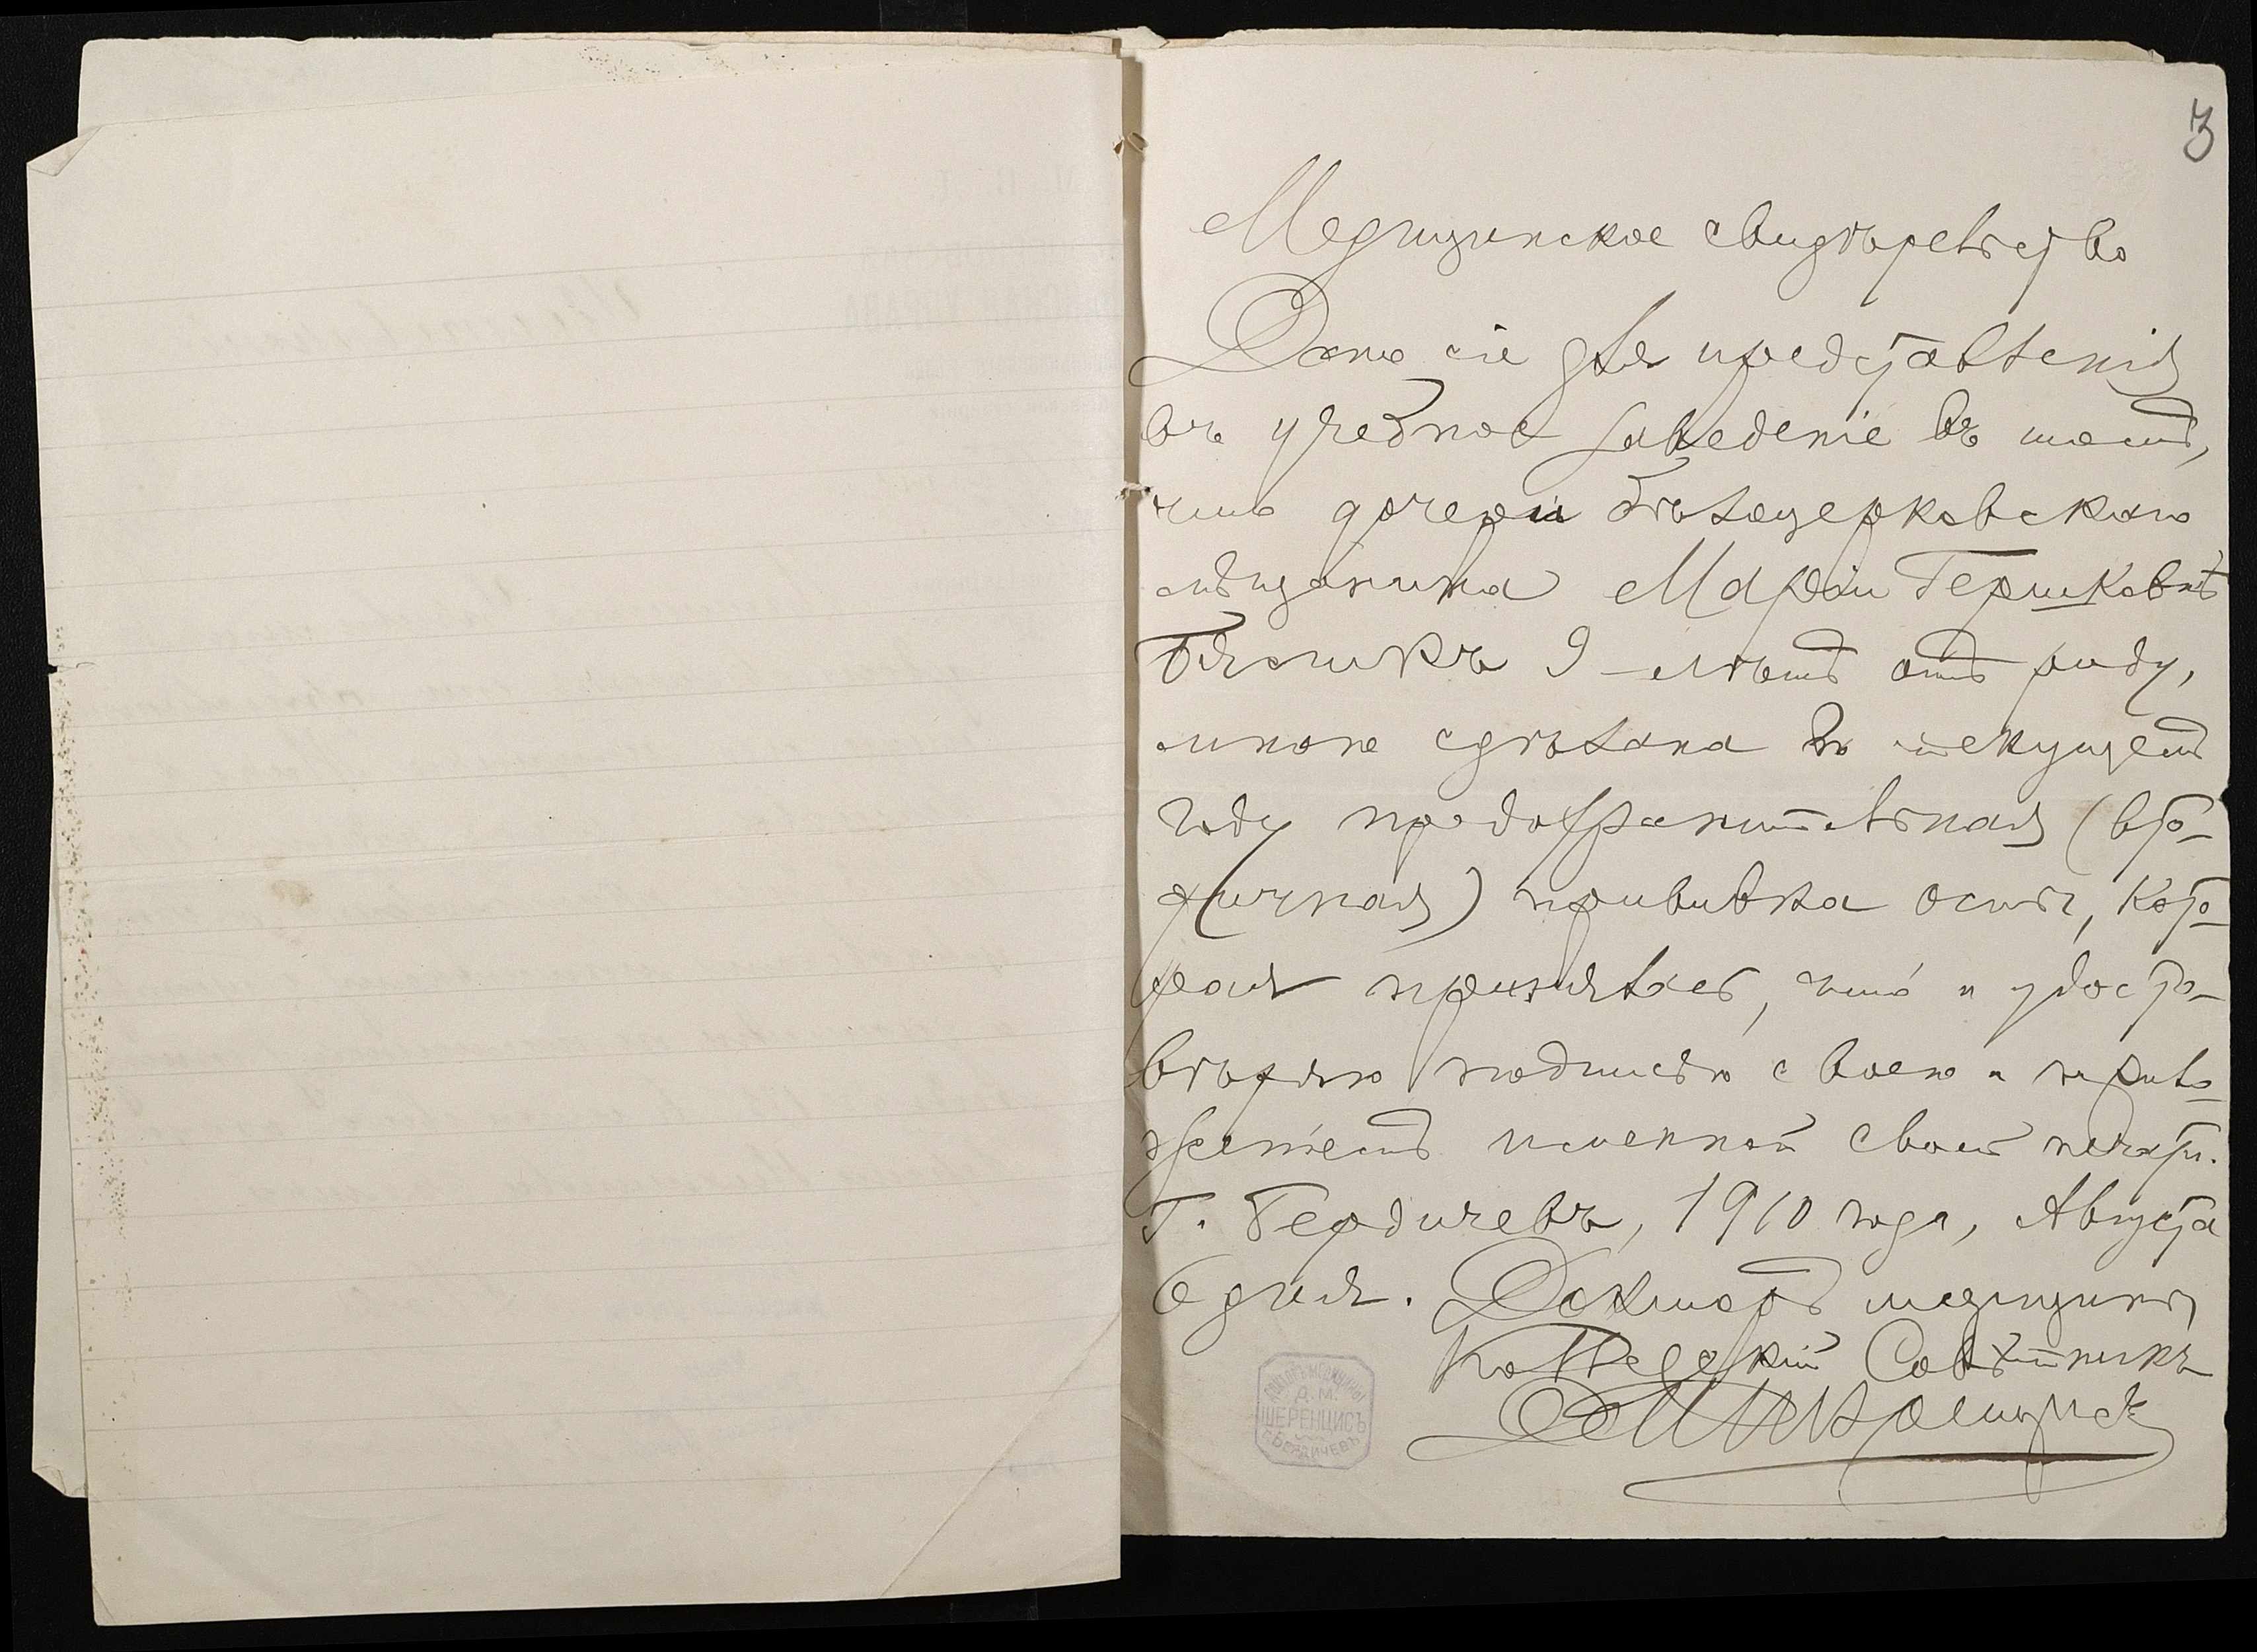 3
Медицинское свидѣтельство
Дано сіе для представленія
въ учебное заведеніе въ томъ,
что дочери бѣлоцерковскаго
мѣщанина Маріи Гершковнѣ
9-лѣтъ отъ роду,
мною сдѣлана въ текущемъ
году предохранительная (вто-
ричная) прививка оспы, кото-
рая принялась, что и удосто-
вѣряю подписью своею и прило-
женіемъ именной своей печати.
Г. Бердичевъ, 1910 года, Августа
6 дня. Докторъ медицины,
Коллежскій Совѣтникъ
ДОКТОРЪ МЕДИЦИНЫ
Д. М.
ШЕРЕНЦИСЪ
г. БЕРДИЧЕВЪ